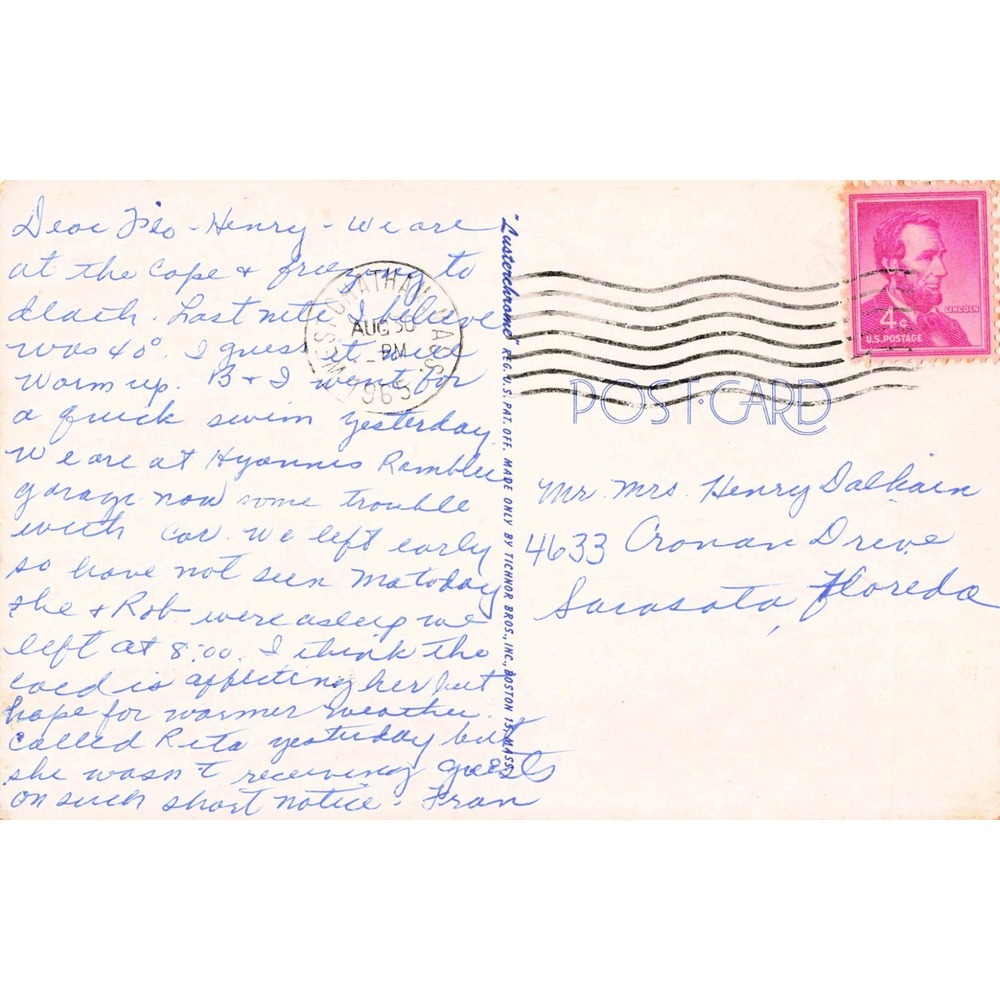 Dear Flo - Henry - We are
at the Cape & freezing to
death. Last nite I believe
was 40°. I guess it will
warm up. B & I went for
a quick swim yesterday.
We are at Hyannis Rambler
garage now some trouble
with car. We left early
so have not seen Ma today
she & Rob were asleep we
left at 8:00. I think the
cold is affecting her but
hope for warmer weather.
Called Rita yesterday but
she wasn't receiving guests
on such short notice - Fran
"Lusterchrome" REG. U.S. PAT. OFF. MADE ONLY BY TICHNOR BROS., INC., BOSTON 15, MASS.
WEST CHATHAM MASS.
AUG 30
PM
1963
4¢
LINCOLN
U.S. POSTAGE
POST CARD
Mr. Mrs. Henry
4633 Cronan Drive
Sarasota, Floreda